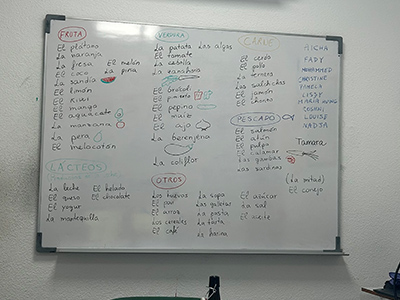 FRUTA
El plátano
La naranja
La fresa El melón
El coco La piña
La sandía
El limón
El kiwi
El mango
El aguacate
La manzana
La pera
El melocotón
VERDURA
La patata Las algas
El tomate
La cebolla
La zanahoria
El brócoli
El pimiento
El pepino
El maíz
El ajo
La berenjena
La coliflor
CARNE
El cerdo
El pollo
La ternera
Las salchichas
El jamón
El chorizo
PESCADO
El salmón
El atún
El pulpo
El calamar
Las gambas
Las sardinas
AICHA
FADY
MOHAMMED
CHRISTINE
PAMELA
LISSY
LOUISE
NADJA
Tamara
(La mitad)
El conejo
LÁCTEOS
La leche El helado
El queso El chocolate
El yogur
La mantequilla
OTROS
Los huevos La sopa El azúcar
El pan Las galletas La sal
El arroz La pasta El aceite
Los cereales La tarta
El café La harina